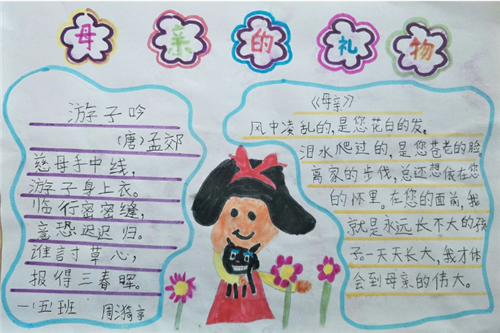 母亲的礼物
游子吟
(唐)孟郊
慈母手中线,
游子身上衣。
临行密密缝,
意恐迟迟归。
谁言寸草心,
报得三春晖。
一(五)班
《母亲》
风中凌乱的,是您花白的发。
泪水爬过的,是您苍老的脸。
离家的步伐,总还想偎在您
的怀里。在您的面前,我
就是永远长不大的孩
子一天天长大,我才体
会到母亲的伟大。